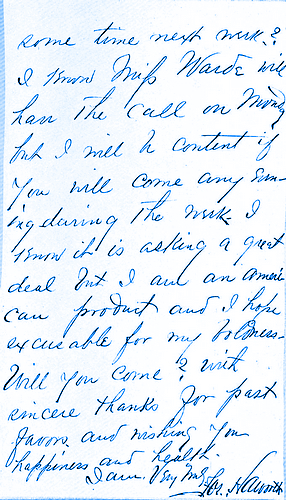 some time next week?
I know Miss Warde will
have the call on Monday
but I will be content if
you will come any even-
ing during the week. I
know it is asking a great
deal but I am an Ameri-
can product and I hope
excusable for my boldness-
Will you come? With
sincere thanks for past
favors and wishing you
happiness and health.
I am Very truly
Jos. Haworth